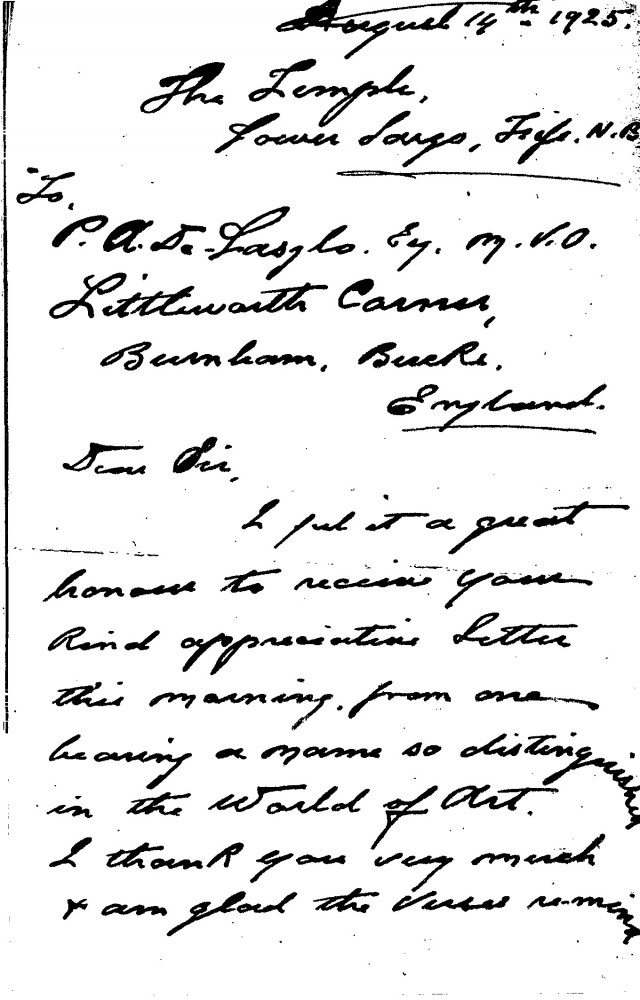 August 14th - 1925.
The Temple,
Lower Largo, Fife. N.B
To,
P. A. De-Laszlo. Esq. M.V.O.
Littleworth Corner,
Burnham, Bucks.
England.
Dear Sir,
I feel it a great
honour to receive your
kind appreciative letter
this morning. from one
bearing a name so distinguished
in the World of Art.
I thank you very much
& am glad the verses remind